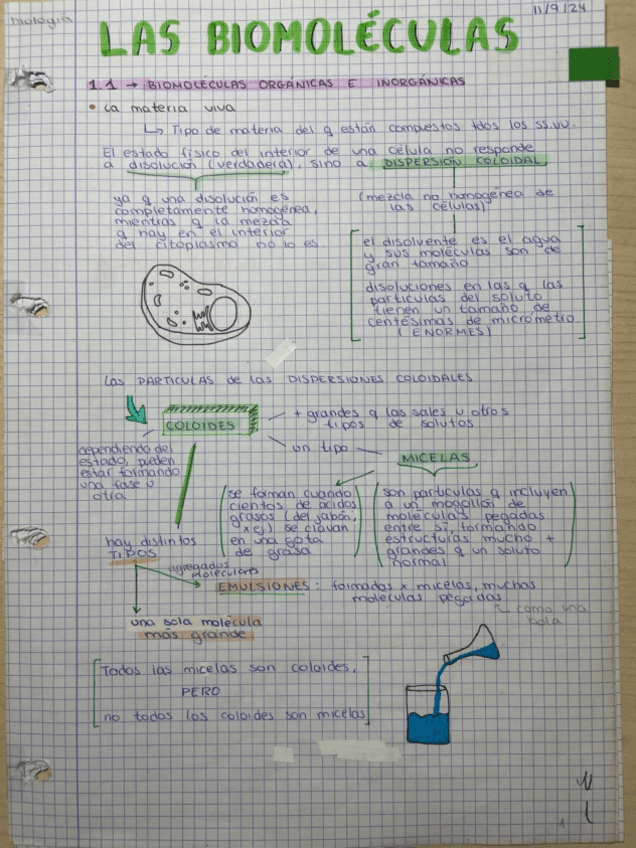 biología
11/9/24
LAS BIOMOLÉCULAS
1.1 → BIOMOLÉCULAS ORGÁNICAS E INORGÁNICAS
• La materia viva
↳ Tipo de materia del q están compuestos tdos los ss.vv.
El estado físico del interior de una célula no responde
a disolución (verdadera), sino a DISPERSIÓN COLOIDAL
ya q una disolución es
completamente homogénea,
mientras q la mezcla
q hay en el interior
del citoplasma no lo es
(mezcla no homogénea de
las células)
el disolvente es el agua
y sus moléculas son de
gran tamaño
disoluciones en las q las
partículas del soluto
tienen un tamaño de
centésimas de micrómetro
(ENORMES)
Las PARTÍCULAS de las DISPERSIONES COLOIDALES
COLOIDES
+ grandes q las sales u otros
tipos de solutos
un tipo
MICELAS
dependiendo del
estado, pueden
estar formando
una fase u
otra
se forman cuando
cientos de ácidos
grasos (del jabón,
x ej) se clavan
en una gota
de grasa
son partículas q incluyen
a un mogollón de
moléculas pegadas
entre sí, formando
estructuras mucho +
grandes q un soluto
normal
hay distintos
TIPOS
agregados
moleculares
EMULSIONES: formadas x micelas, muchas
moléculas pegadas
como una
bola
una sola molécula
más grande
Todas las micelas son coloides,
PERO
no todos los coloides son micelas
1